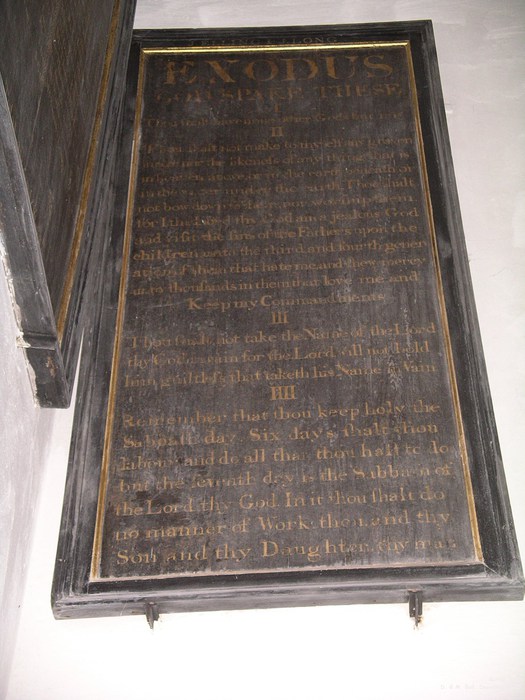 EXODUS
SPAKE THESE
I
Thou shalt have none other Gods but
II
Thou shalt not make to thy self any graven
image nor the likeness of any thing that is
in heaven above or in the earth beneath or
in the water under the earth. Thou shalt
not bow down to them nor worship them
for I the Lord thy God am a jealous God
and visit the sins of the Fathers upon the
children unto the third and fourth gener
ation of them that hate me, and shew mercy
unto thousands in them that love me and
Keep my Commandments
III
Thou shalt not take the Name of the Lord
thy God in vain for the Lord will not hold
him guiltless that taketh his Name in Vain
IIII
Remember that thou keep holy the
Sabbath day. Six days shalt thou
labour and do all that thou hast to do
but the seventh day is the Sabbath of
the Lord thy God. In it thou shalt do
no manner of Work, thou and thy
Son and thy Daughter, thy man